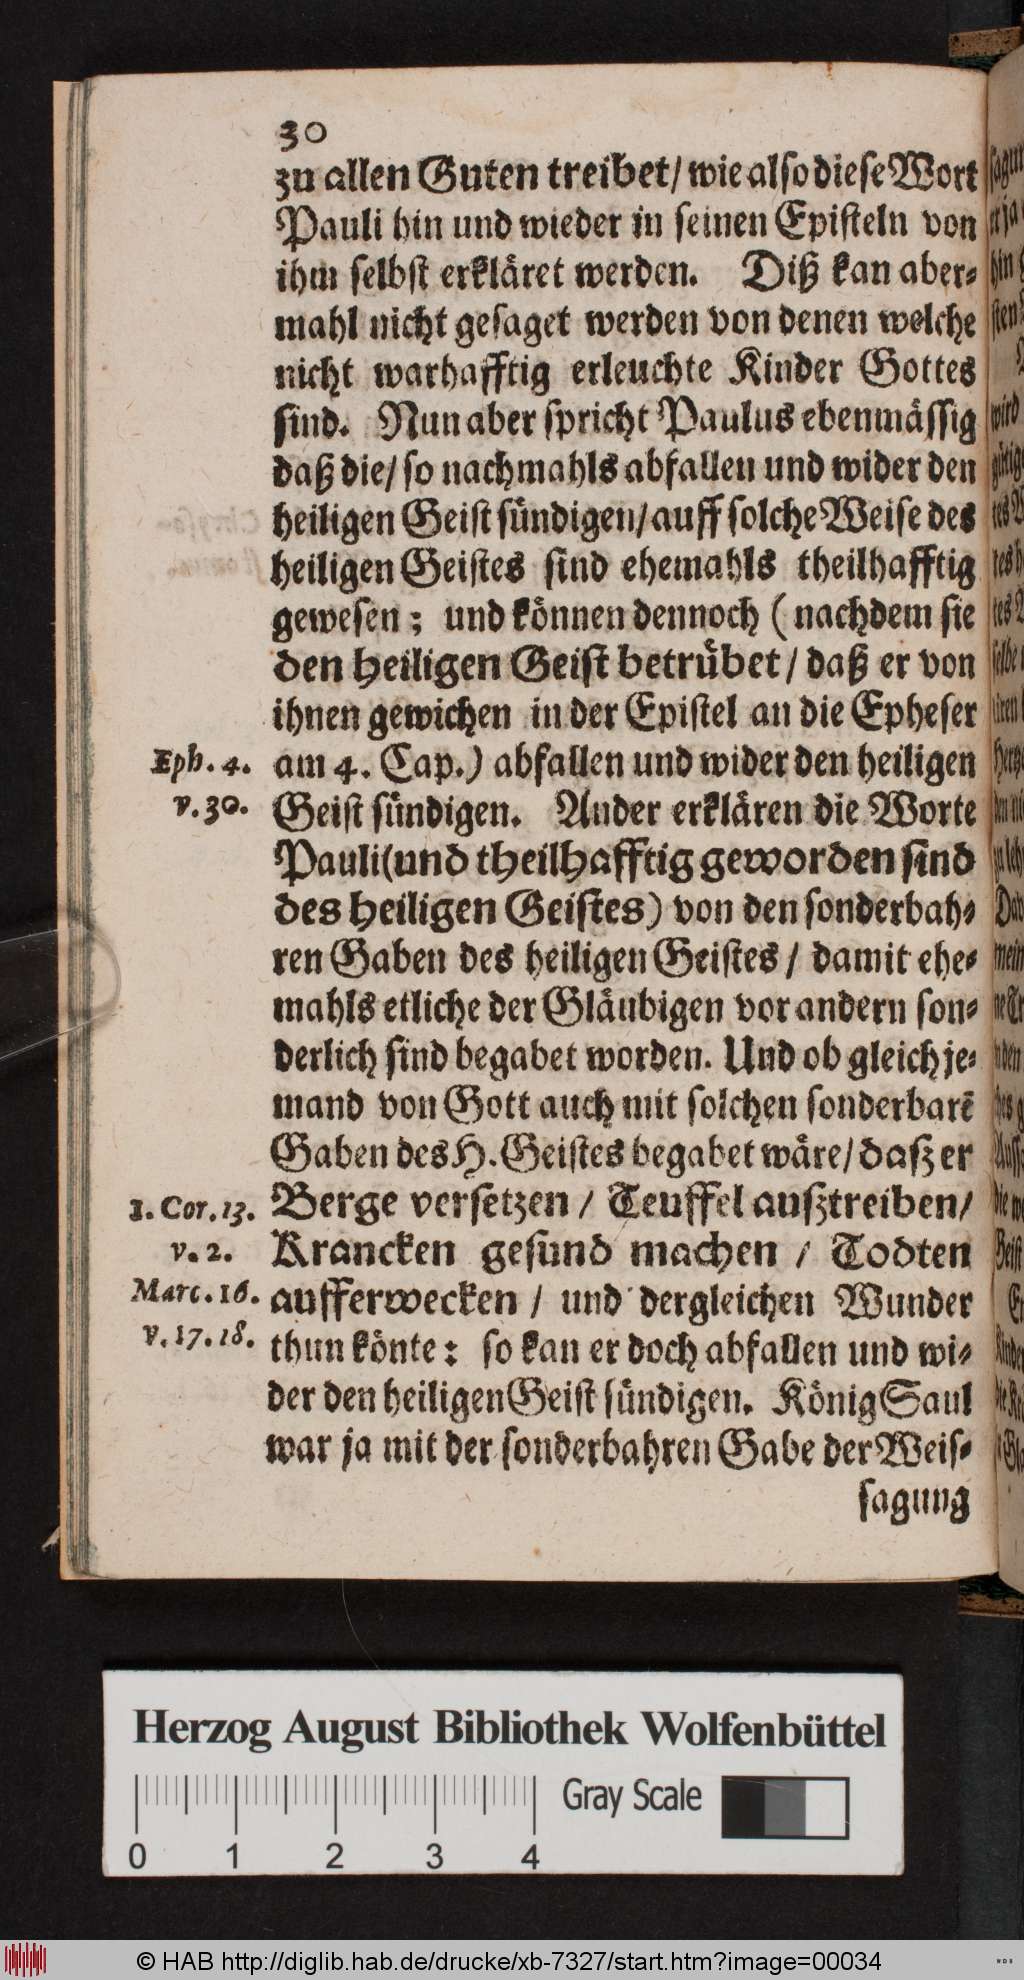 30
zu allen Guten treibet/ wie also diese Wort
Pauli hin und wieder in seinen Episteln von
ihm selbst erkläret werden. Diß kan aber-
mahl nicht gesaget werden von denen welche
nicht warhafftig erleuchte Kinder Gottes
sind. Nun aber spricht Paulus ebenmässig
daß die/ so nachmahls abfallen und wider den
heiligen Geist sündigen/ auff solche Weise des
heiligen Geistes sind ehemahls theilhafftig
gewesen; und können dennoch (nachdem sie
den heiligen Geist betrübet/ daß er von
ihnen gewichen in der Epistel an die Epheser
Eph. 4. am 4. Cap.) abfallen und wider den heiligen
v. 30. Geist sündigen. Ander erklären die Worte
Pauli (und theilhafftig geworden sind
des heiligen Geistes) von den sonderbah-
ren Gaben des heiligen Geistes / damit ehe-
mahls etliche der Gläubigen vor andern son-
derlich sind begabet worden. Und ob gleich je-
mand von Gott auch mit solchen sonderbarē
Gaben des H. Geistes begabet wäre/ daß er
1. Cor. 13. Berge versetzen / Teuffel außtreiben/
v. 2. Krancken gesund machen / Todten
Marc. 16. aufferwecken / und dergleichen Wunder
v. 17. 18. thun könte: so kan er doch abfallen und wi-
der den heiligen Geist sündigen. König Saul
war ja mit der sonderbahren Gabe der Weis-
sagung
Herzog August Bibliothek Wolfenbüttel
Gray Scale
0 1 2 3 4
© HAB http://diglib.hab.de/drucke/xb-7327/start.htm?image=00034